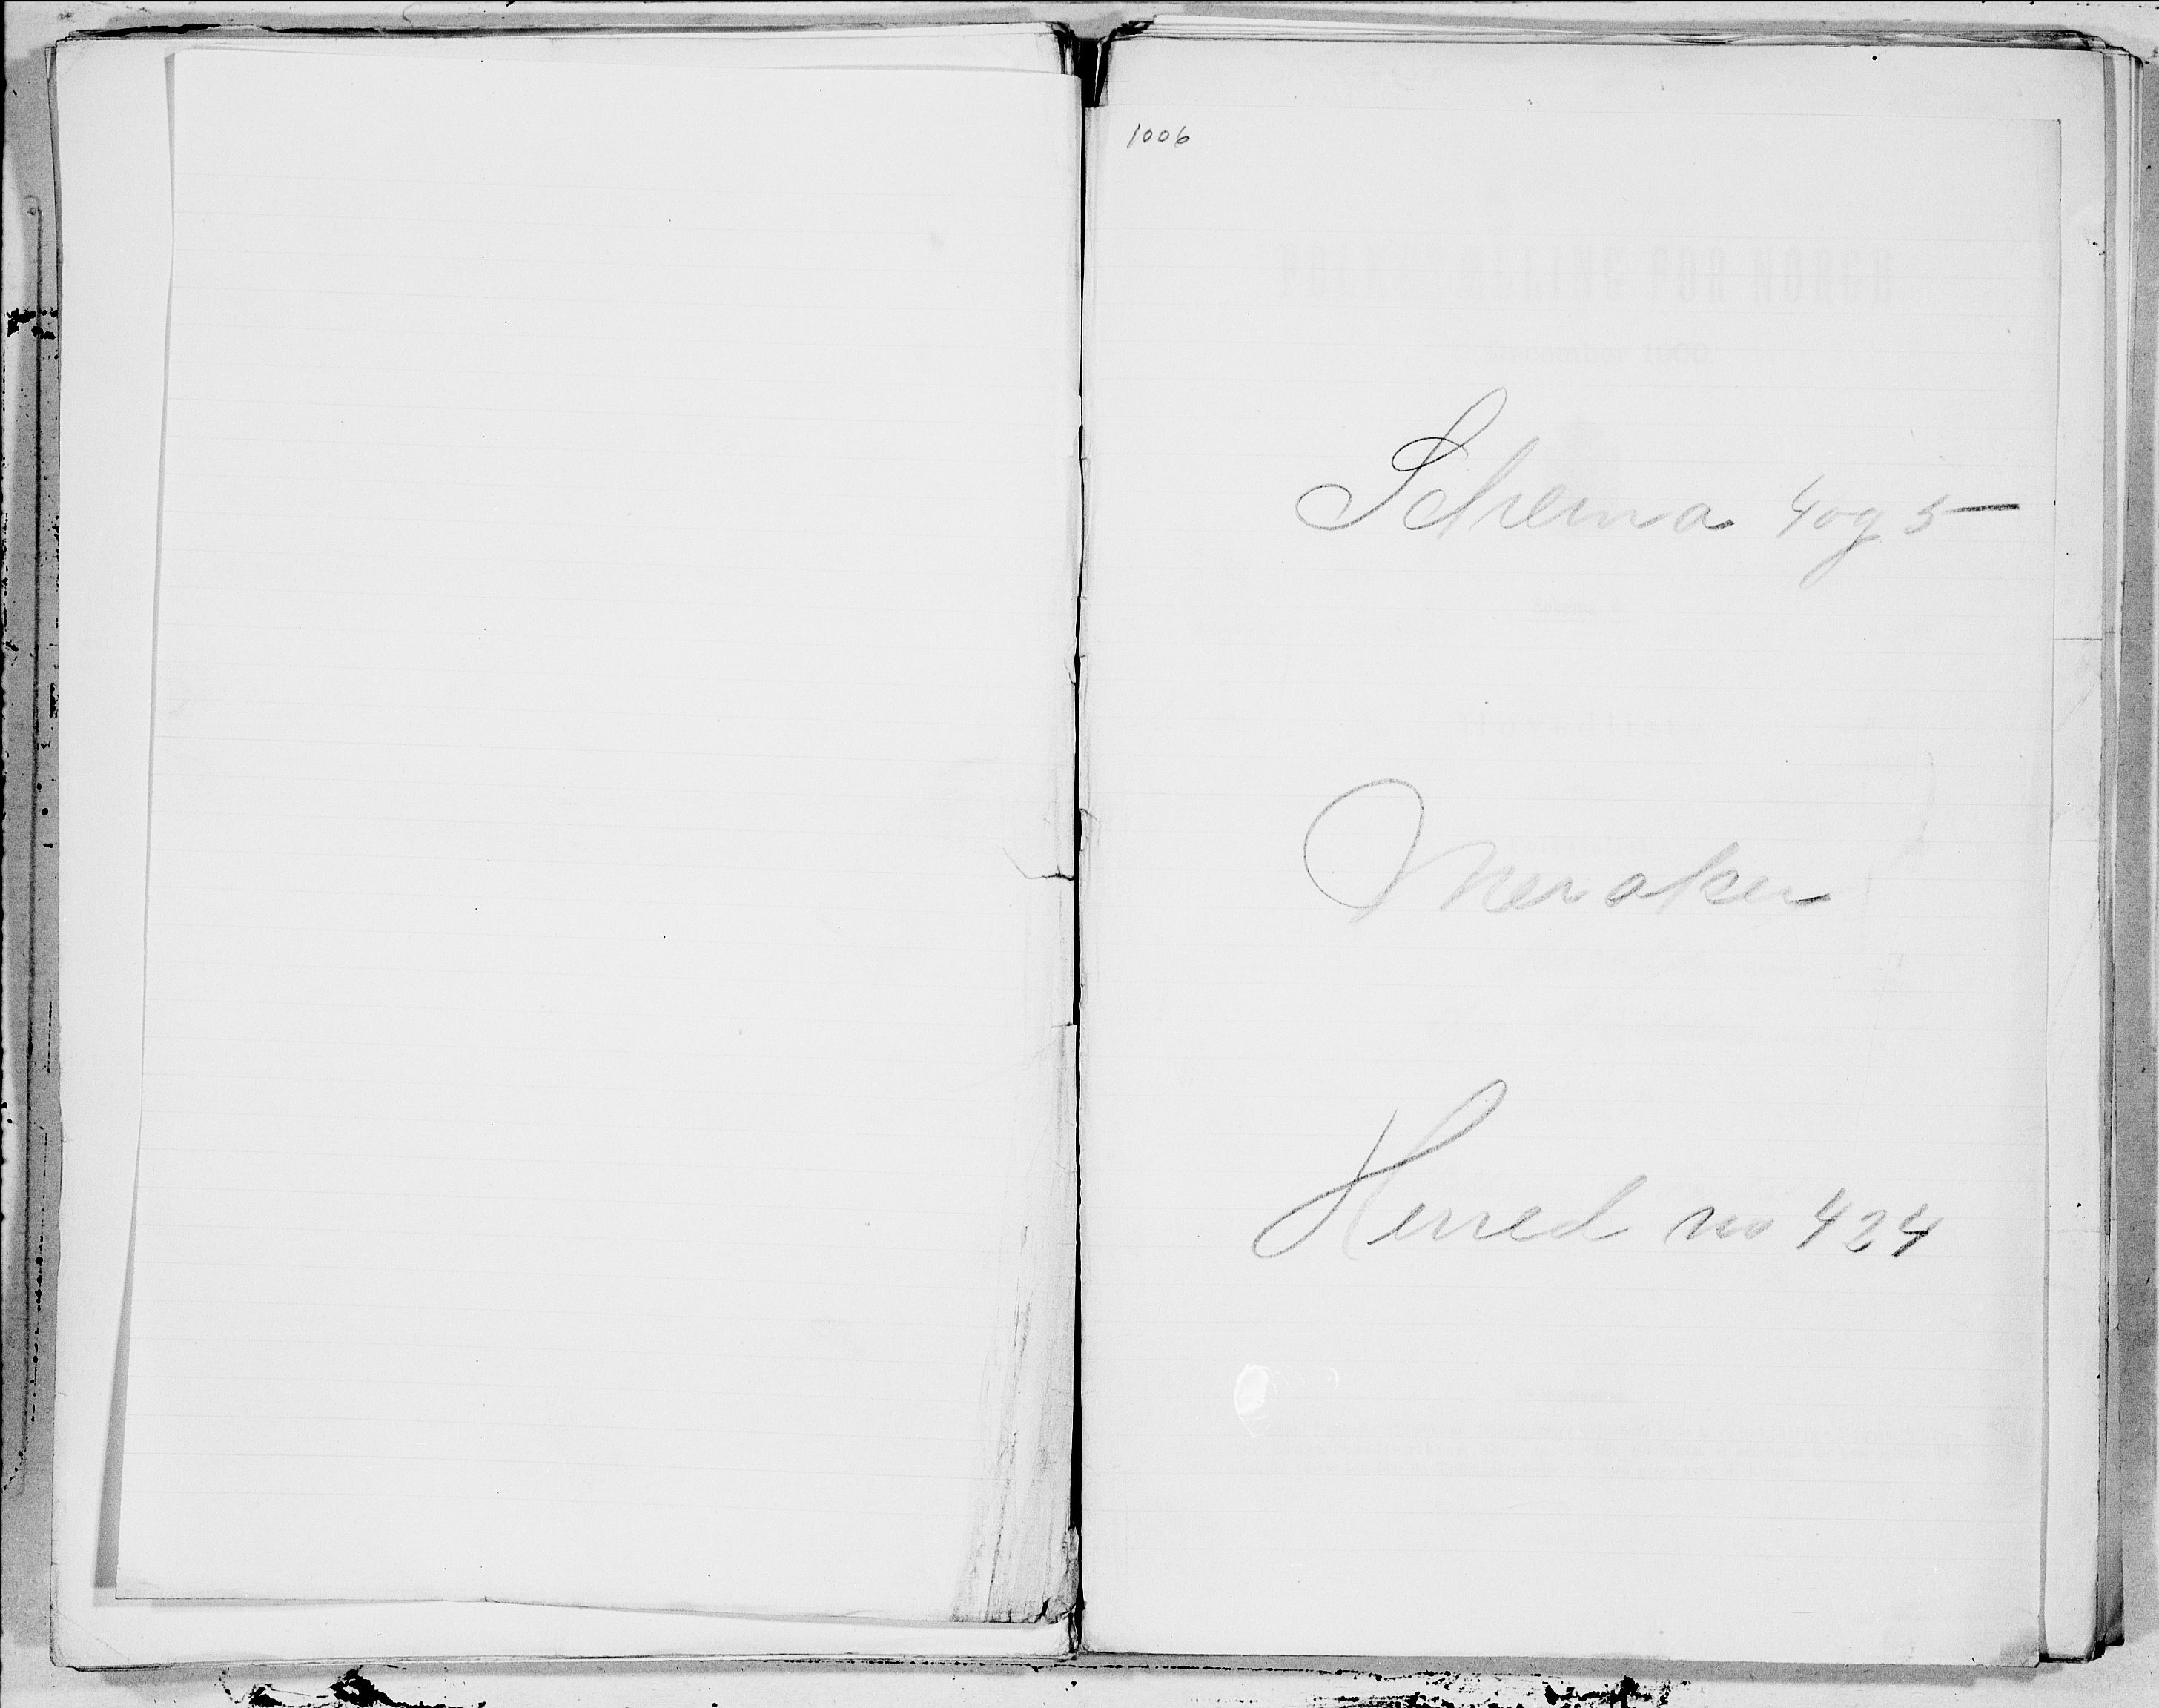 1006
FOLKETÆLLING FOR NORGE
December 1900
Schema 4 og 5
Hovedliste
Meraker
Herred no 424